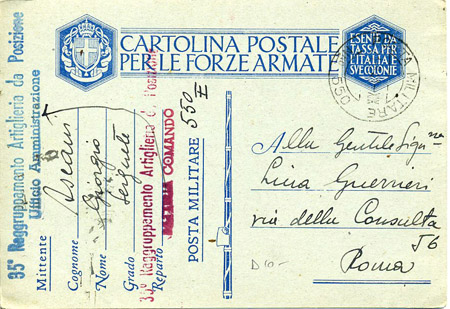 CARTOLINA POSTALE
PER LE FORZE ARMATE
ESENTE DA
TASSA PER
L'ITALIA E
SVE COLONIE
POSTA MILITARE
N. 550
35° Raggruppamento Artiglieria da Posizione
Ufficio Amministrazione
Mittente
Cognome Ascani
Nome Giorgio
Grado Sergente
Reparto
35° Raggruppamento Artiglieria da Posizione
COMANDO
POSTA MILITARE 550
E
Alla Gentile Sig.na
Lina Guerrieri
via della Consulta
56
Roma
D 10-